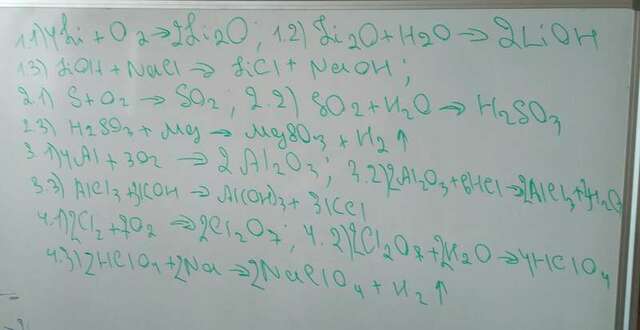 1.1) 4Li + O2 → 2Li2O; 1.2) Li2O + H2O → 2LiOH
1.3) LiOH + NaCl → LiCl + NaOH;
2.1) S + O2 → SO2; 2.2) SO2 + H2O → H2SO3
2.3) H2SO3 + Mg → MgSO3 + H2↑
3.1) 4Al + 3O2 → 2Al2O3; 3.2) 2Al2O3 + 6HCl → 2AlCl3 + 3H2O
3.3) AlCl3 + 3KOH → Al(OH)3 + 3KCl
4.1) 2Cl2 + 7O2 → 2Cl2O7; 4.2) 2Cl2O7 + 2H2O → 4HClO4
4.3) 2HClO4 + 2Na → 2NaClO4 + H2↑